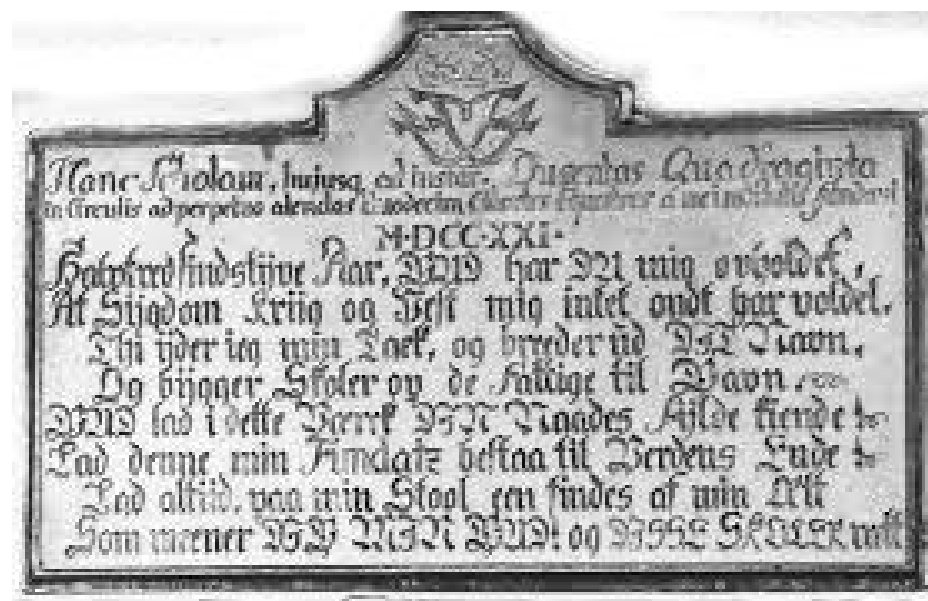 Hanc Scholam, hujusq ad instar, Ducentas Quadraginta
in Circulis ad perpetuo alendas duodecim Cohortes Equestres a me institutis fundavi
M·DCC·XXI·
Halvtredsindstijve Aar, GUD har DU mig opholdet,
At Sijgdom Kriig og Pest mig intet ondt har voldet.
Thi ijder ieg min Tack, og breeder ud DIT Navn,
Og bijgger Skoler op de Fattige til Gavn
GUD lad i dette Værck DIN Naades Fylde kiende
Lad denne min Fundatz bestaa til Verdens Ende
Lad altiid, paa min Stool een findes af min Æt
Som meener DIG MIN GUD! og DISSE SKOLER rætt